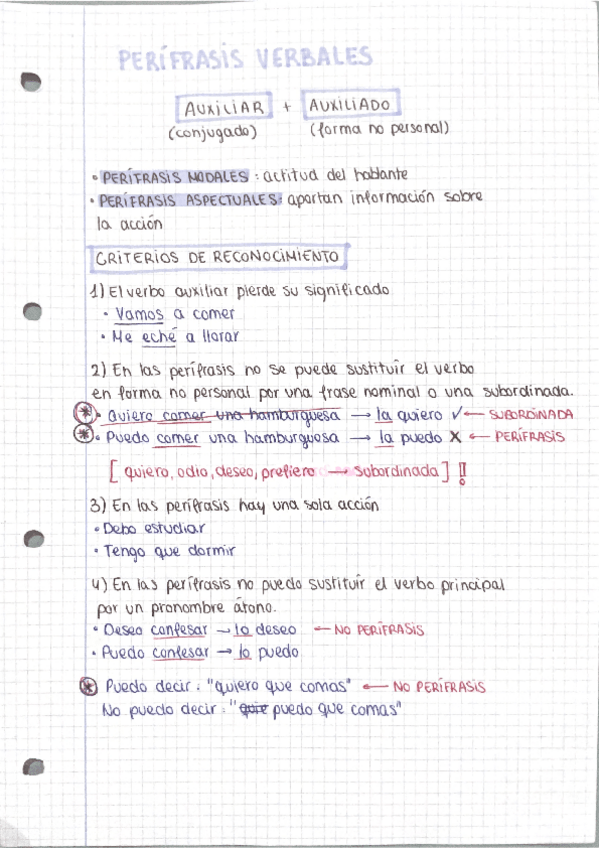 PERÍFRASIS VERBALES
AUXILIAR + AUXILIADO
(conjugado) (forma no personal)
• PERÍFRASIS MODALES : actitud del hablante
• PERÍFRASIS ASPECTUALES: aportan información sobre
la acción
CRITERIOS DE RECONOCIMIENTO
1) El verbo auxiliar pierde su significado
• Vamos a comer
• Me eché a llorar
2) En las perífrasis no se puede sustituir el verbo
en forma no personal por una frase nominal o una subordinada.
* • Quiero comer una hamburguesa → la quiero ✓ ← SUBORDINADA
* • Puedo comer una hamburguesa → la puedo X ← PERÍFRASIS
[ quiero, odio, deseo, prefiero → subordinada ] !!
3) En las perífrasis hay una sola acción
• Debo estudiar
• Tengo que dormir
4) En las perífrasis no puedo sustituír el verbo principal
por un pronombre átono.
• Deseo confesar → lo deseo ← NO PERÍFRASIS
• Puedo confesar → lo puedo
* Puedo decir : "quiero que comas" ← NO PERÍFRASIS
No puedo decir : " quie puedo que comas"